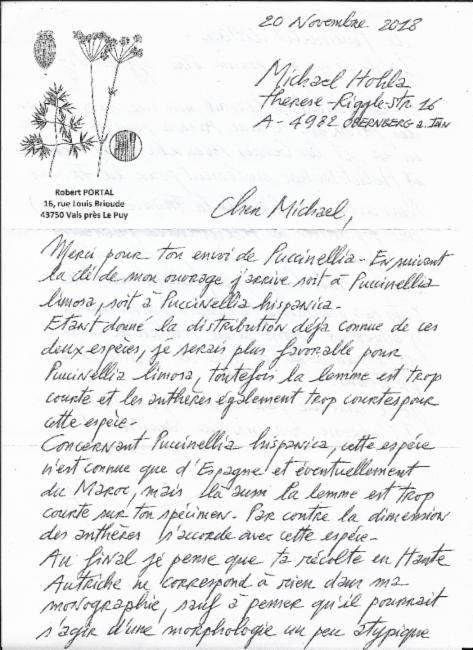 20 Novembre 2018
Michael Hohla
Therese-Riggle-Str. 16
A - 4982 OBERNBERG a. INN
Robert PORTAL
16, rue Louis Brioude
43750 Vals près Le Puy
Cher Michael,
Merci pour ton envoi de Puccinellia - En suivant
la clé de mon ouvrage j'arrive soit à Puccinellia
limosa, soit à Puccinellia hispanica -
Etant donné la distribution déja connue de ces
deux espèces, je serais plus favorable pour
Puccinellia limosa, toutefois la lemme est trop
courte et les anthères également trop courtes pour
cette espèce -
Concernant Puccinellia hispanica, cette espèce
n'est connue que d'Espagne et éventuellement
du Maroc, mais là aussi la lemme est trop
courte sur ton spécimen - Par contre la dimension
des anthères s'accorde avec cette espèce -
Au final je pense que ta récolte en Haute
Autriche ne correspond à rien dans ma
monographie, sauf à penser qu'il pourrait
s'agir d'une morphologie un peu atypique